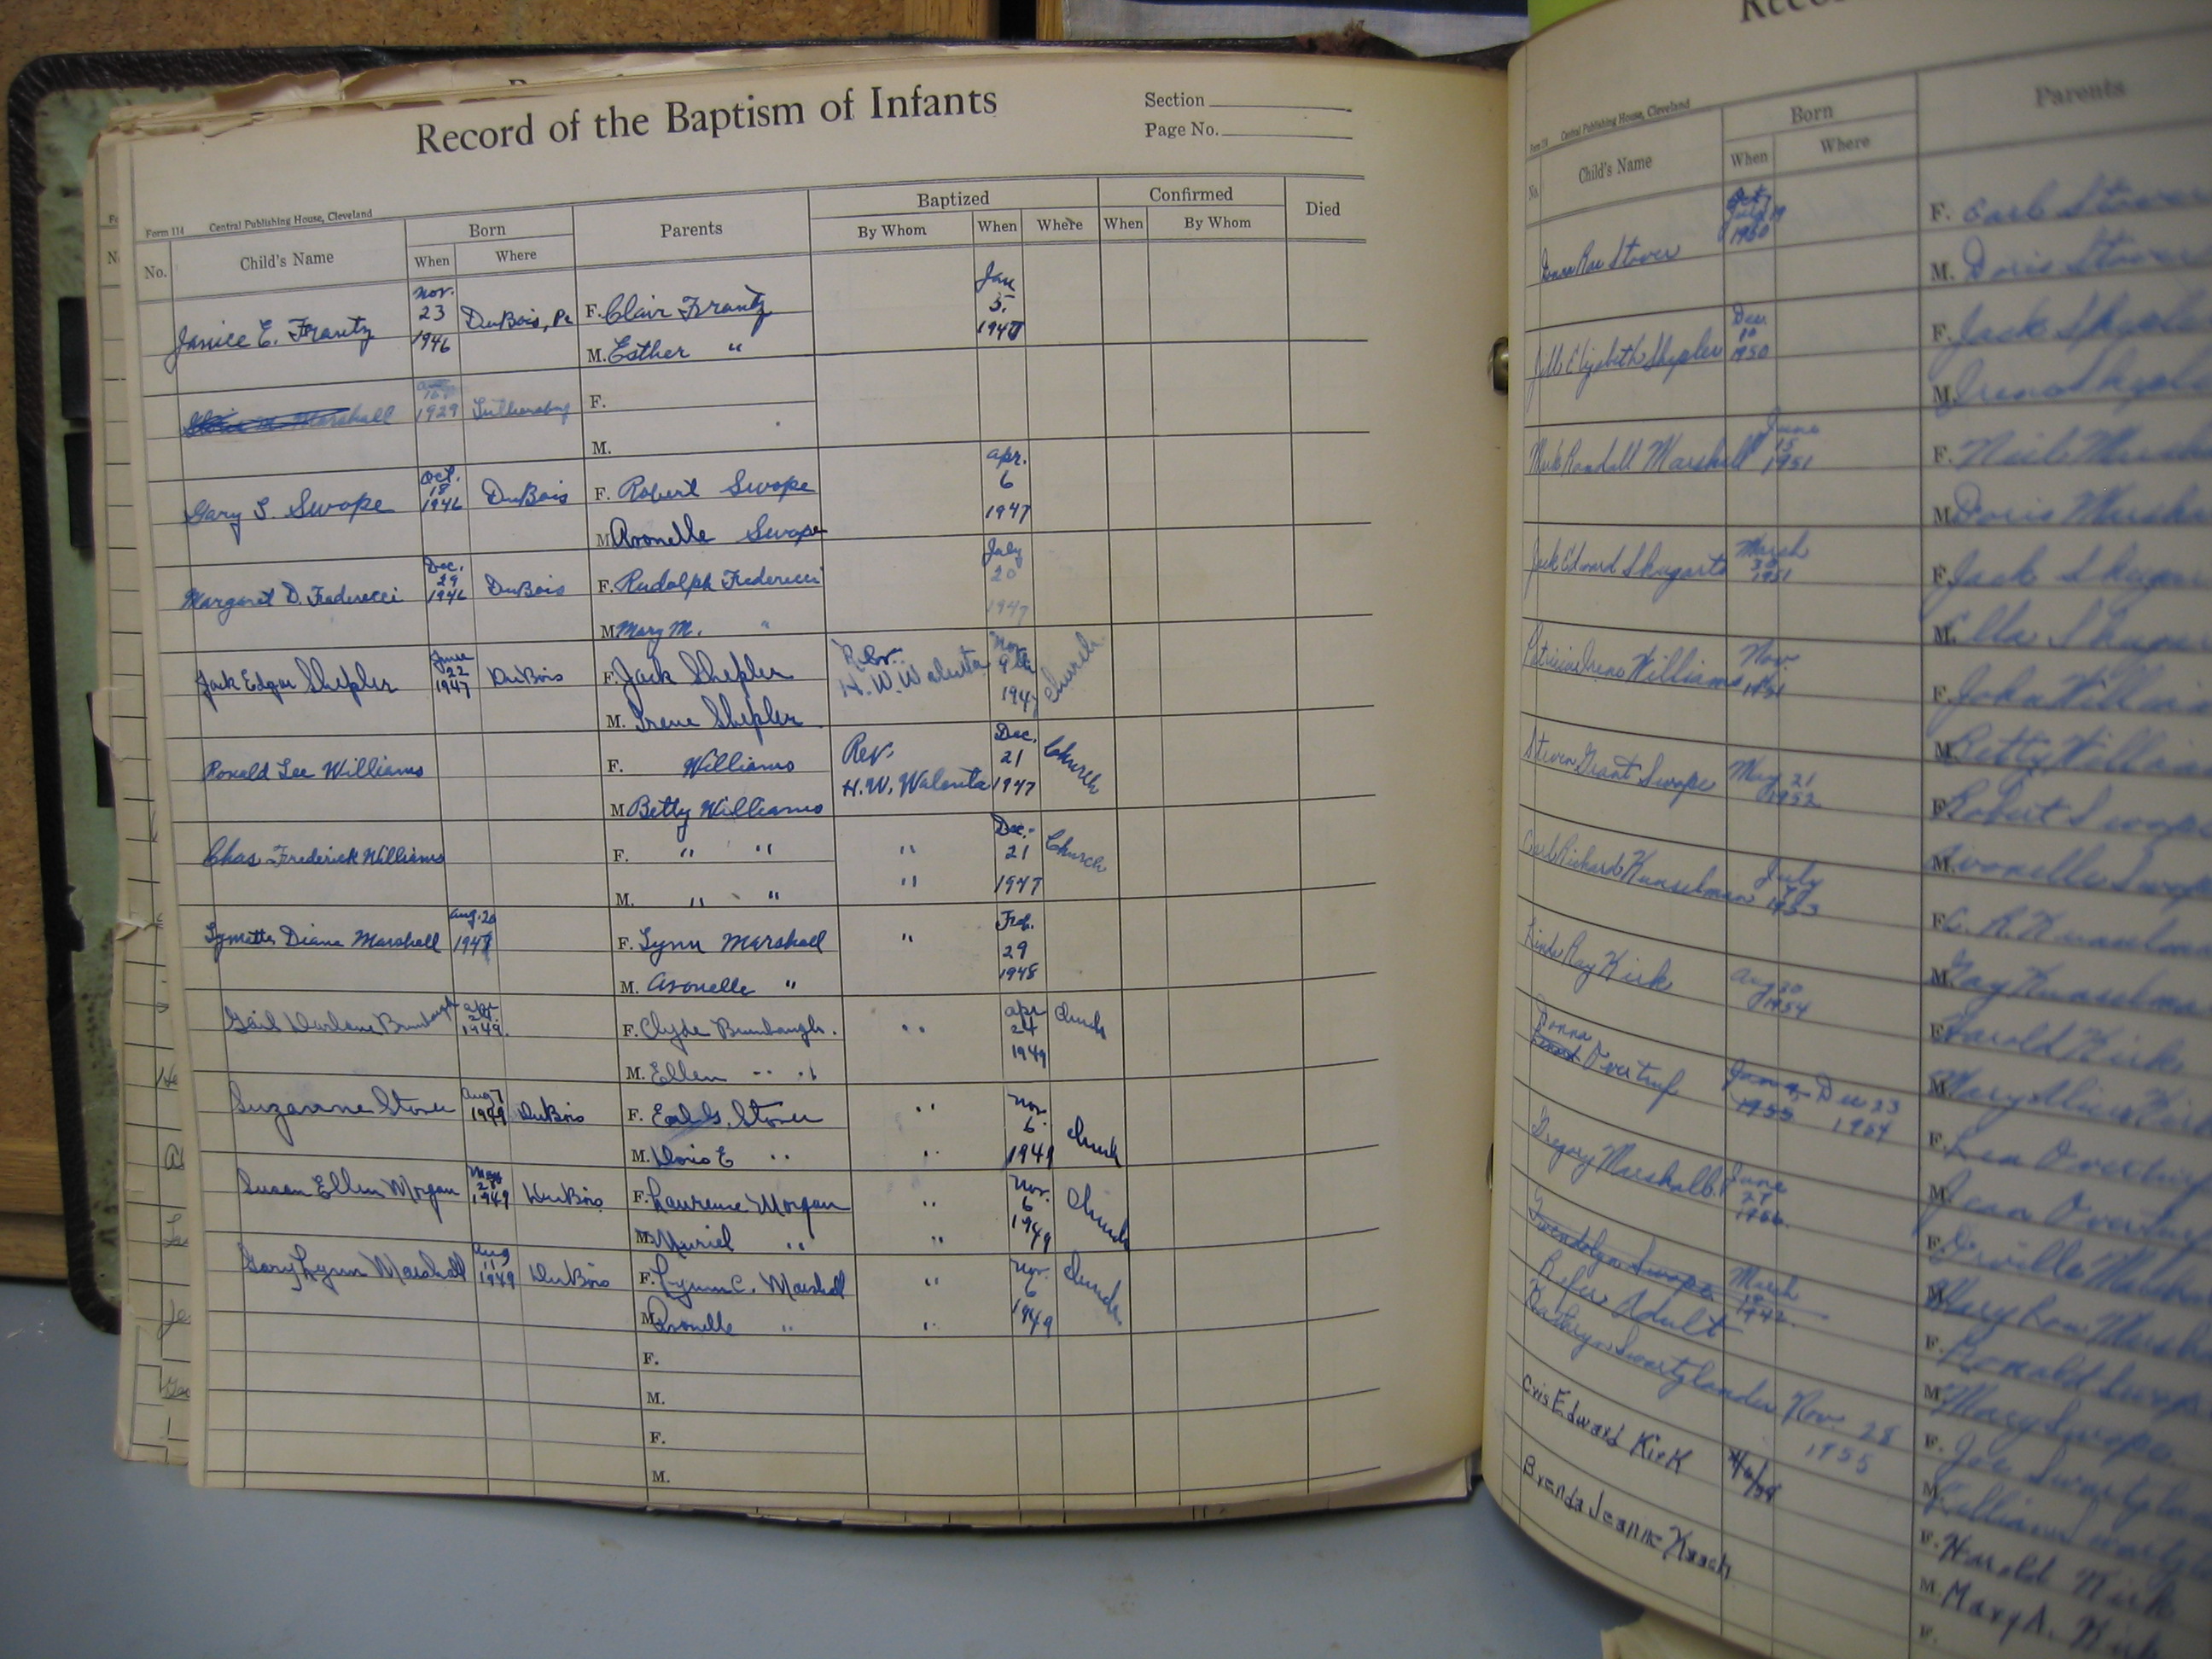 Record of the Baptism of Infants
Section
Page No.
Form 114 Central Publishing House, Cleveland
No. Child's Name Born When Where Parents Baptized By Whom When Where Confirmed When By Whom Died
Janice E. Frantz Nov. 23 1946 DuBois, Pa F. Clair Frantz Jan 5, 1947
M. Esther "
M. Marshall 1929 F.
M.
Gary S. Swope Oct. 18 1946 DuBois F. Robert Swope Apr. 6 1947
M. Avonelle Swope
Margaret D. Federecci Dec. 29 1946 DuBois F. Rudolph Federecci July 20 1947
M. Mary M. "
Jack Edgar Shepler June 22 1947 DuBois F. Jack Shepler Rev. H. W. Walenta Nov 9th 1947 Church
M. Irene Shepler
Ronald Lee Williams F. Williams Rev. H. W. Walenta Dec. 21 1947 Church
M. Betty Williams
Chas Frederick Williams F. " " " Dec. 21 1947 Church
M. " " "
Lynette Diane Marshall Aug. 20 1947 F. Lynn Marshall " Feb. 29 1948
M. Avonelle "
Gail Darlene Brumbaugh 1949. F. Clyde Brumbaugh. " Apr 24 1949 Church
M. Ellen " "
Suzanne Stover Aug 7 1949 DuBois F. Earl G. Stover " Nov. 6. 1949 Church
M. Doris E " "
Susan Ellen Morgan May 28 1949 DuBois F. Laurence Morgan " Nov. 6 1949 Church
M. Muriel " "
Gary Lynn Marshall Aug 11 1949 DuBois F. Lynn C. Marshall " Nov. 6 1949 Church
M. Avonelle " "
F.
M.
F.
M.
Form 114 Central Publishing House, Cleveland
No. Child's Name Born When Where Parents
Donna Rae Stover 1950 F. Earl Stover
M. Doris Stover
Jill Elizabeth Shepler Dec. 10 1950 F. Jack
M. Irene
Mark Randall Marshall June 15 1951 F.
M. Doris
Jack Edward Shugarts March 30 1951 F. Jack
M. Ella
Patricia Irene Williams Nov. 1951 F. John Williams
M. Betty Williams
Steven Grant Swope May 21 1952 F. Robert Swope
M. Avonelle Swope
Carl Richard Kunselman July 1953 F. C. R. Kunselman
M. Kunselman
Linda Ray Kirk Aug 20 1954 F. Harold Kirk
M. Mary Alice Kirk
Donna Overturf Jan 1955 Dec 23 1954 F. Overturf
M. Jean Overturf
Gregory Marshall June 27 F. Orville
M. Mary
Gwendolyn Swope March 18 1942 F. Ronald Swope
Refer Adult M. Mary Swope
Kathryn Swartzlander Nov. 28 1955 F. Joe
M.
Cris Edward Kirk F. Harold Kirk
M. Mary A. Kirk
Brenda Jeanne Keach F.